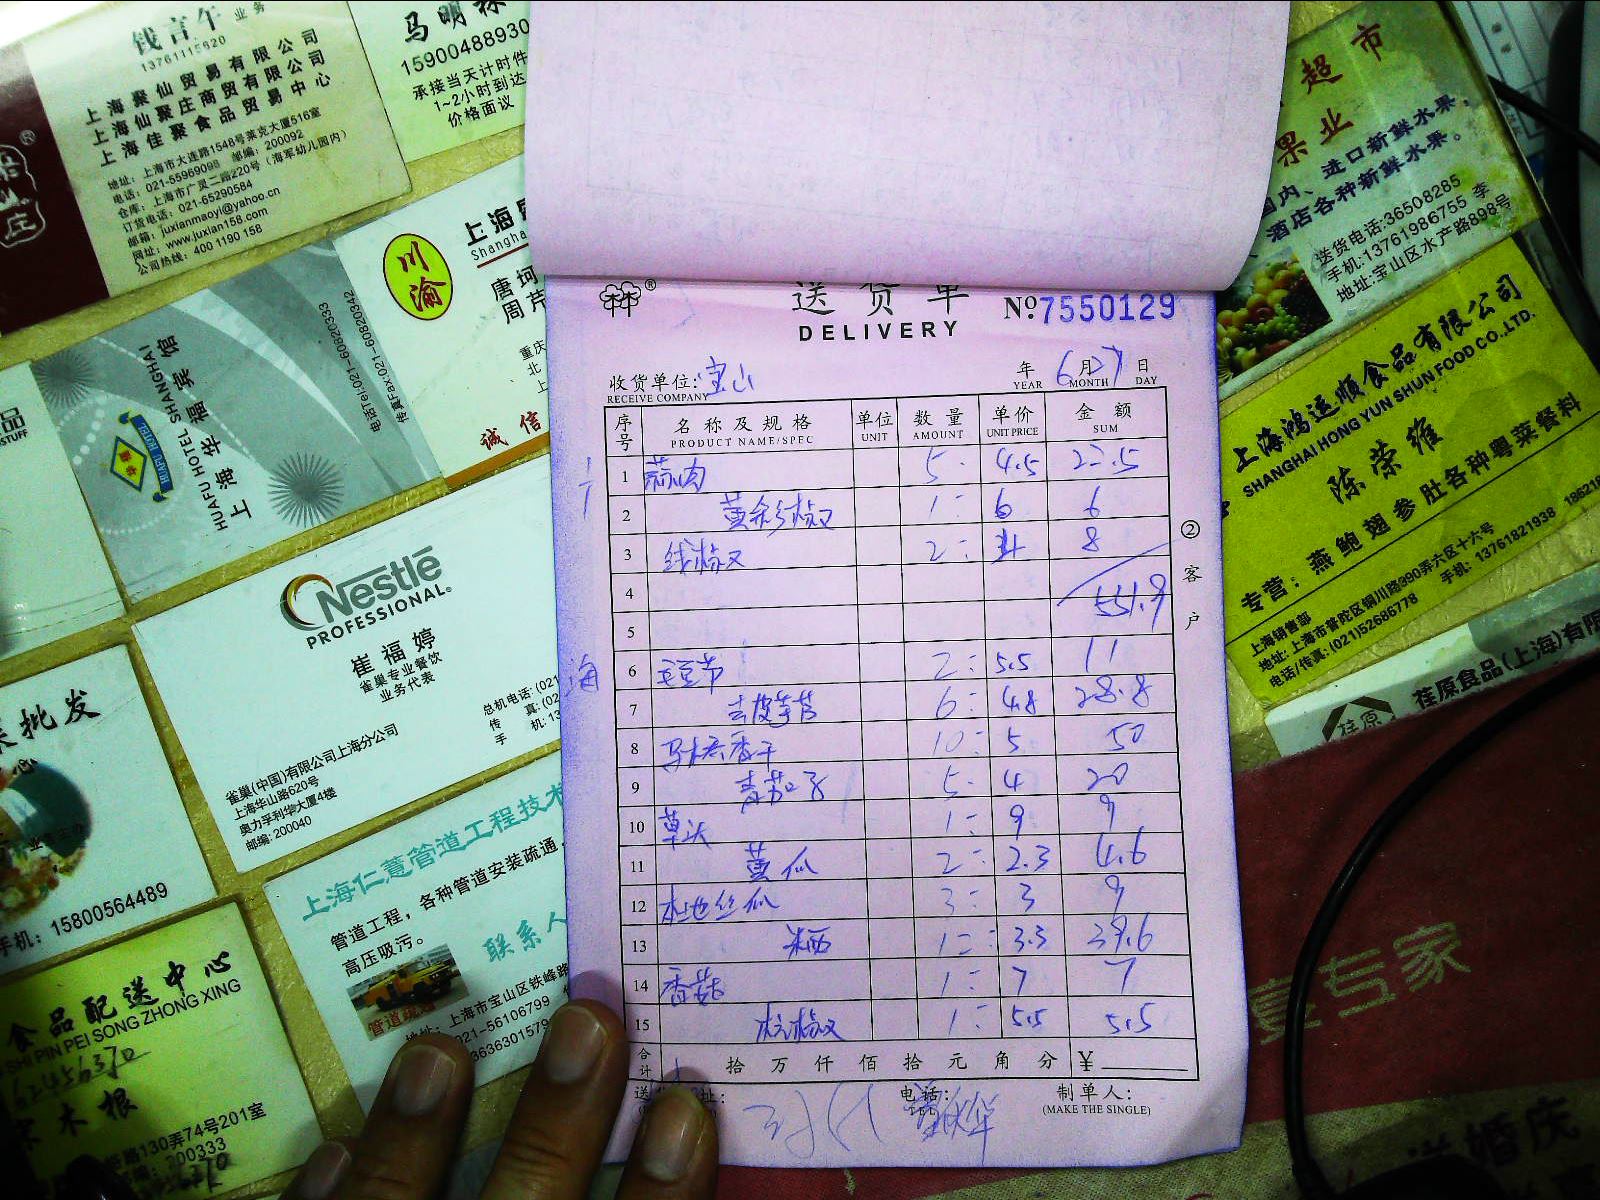 钱言午 业务
13761115620
上海聚仙贸易有限公司
上海仙聚庄商贸有限公司
上海佳聚食品贸易中心
地址:上海市大连路1548号莱克大厦516室
电话:021-55969098 邮编:200092
仓库:上海市广灵二路220号(海军幼儿园内)
订货电话:021-65290584
邮箱:juxianmaoyi@yahoo.cn
网址:www.juxian158.com
公司热线:400 1190 158
马明
15900488930
承接当天计时件
1~2小时到达
价格面议
川渝
上海
Shangha
唐珂
周芹
重庆
北
上
诚信
HUAFU HOTEL SHANGHAI
上海华福宾馆
电话Tel:021-60820333
传真Fax:021-60820342
Nestlé
PROFESSIONAL
崔福婷
雀巢专业餐饮
业务代表
总机电话:(021
传 真:(02
手 机:13
雀巢(中国)有限公司上海分公司
上海华山路620号
奥力孚利华大厦4楼
邮编:200040
批发
手机:15800564489
上海仁薏管道工程技术
管道工程,各种管道安装疏通,
高压吸污。
联系人
地址:上海市宝山区铁峰路
021-56106799
3636301579
食品配送中心
SHI PIN PEI SONG ZHONG XING
木根
路130弄74号201室
邮编:200333
送货单
DELIVERY
No 7550129
收货单位:宝山
RECEIVE COMPANY
年 6月27日
YEAR MONTH DAY
序号 名称及规格 单位 数量 单价 金额
PRODUCT NAME/SPEC UNIT AMOUNT UNIT PRICE SUM
1 蒜肉 5 4.5 22.5
2 1 6 6
3 线椒 2 4 8
4
551.9
5
6 2 5.5 11
7 去皮芋艿 6 4.8 28.8
8 香干 10 5 50
9 青茄子 5 4 20
10 草头 1 9 9
11 黄瓜 2 2.3 4.6
12 本地丝瓜 3 3 9
13 12 3.3 39.6
14 香菇 1 7 7
15 杭椒 1 5.5 5.5
合计 拾万仟佰拾元角分 ¥
电话:
制单人:
(MAKE THE SINGLE)
②客户
超市
果业
国内、进口新鲜水果,
酒店各种新鲜水果。
送货电话:36508285
手机:13761986755 李
地址:宝山区水产路898号
上海鸿运顺食品有限公司
SHANGHAI HONG YUN SHUN FOOD CO.,LTD.
陈荣维
专营:燕鲍翅参肚各种粤菜餐料
上海销售部
地址:上海市普陀区铜川路390弄六区十六号
电话/传真:(021)52686778 手机:13761821938 18621
荏原
荏原食品(上海)有限
专家
婚庆